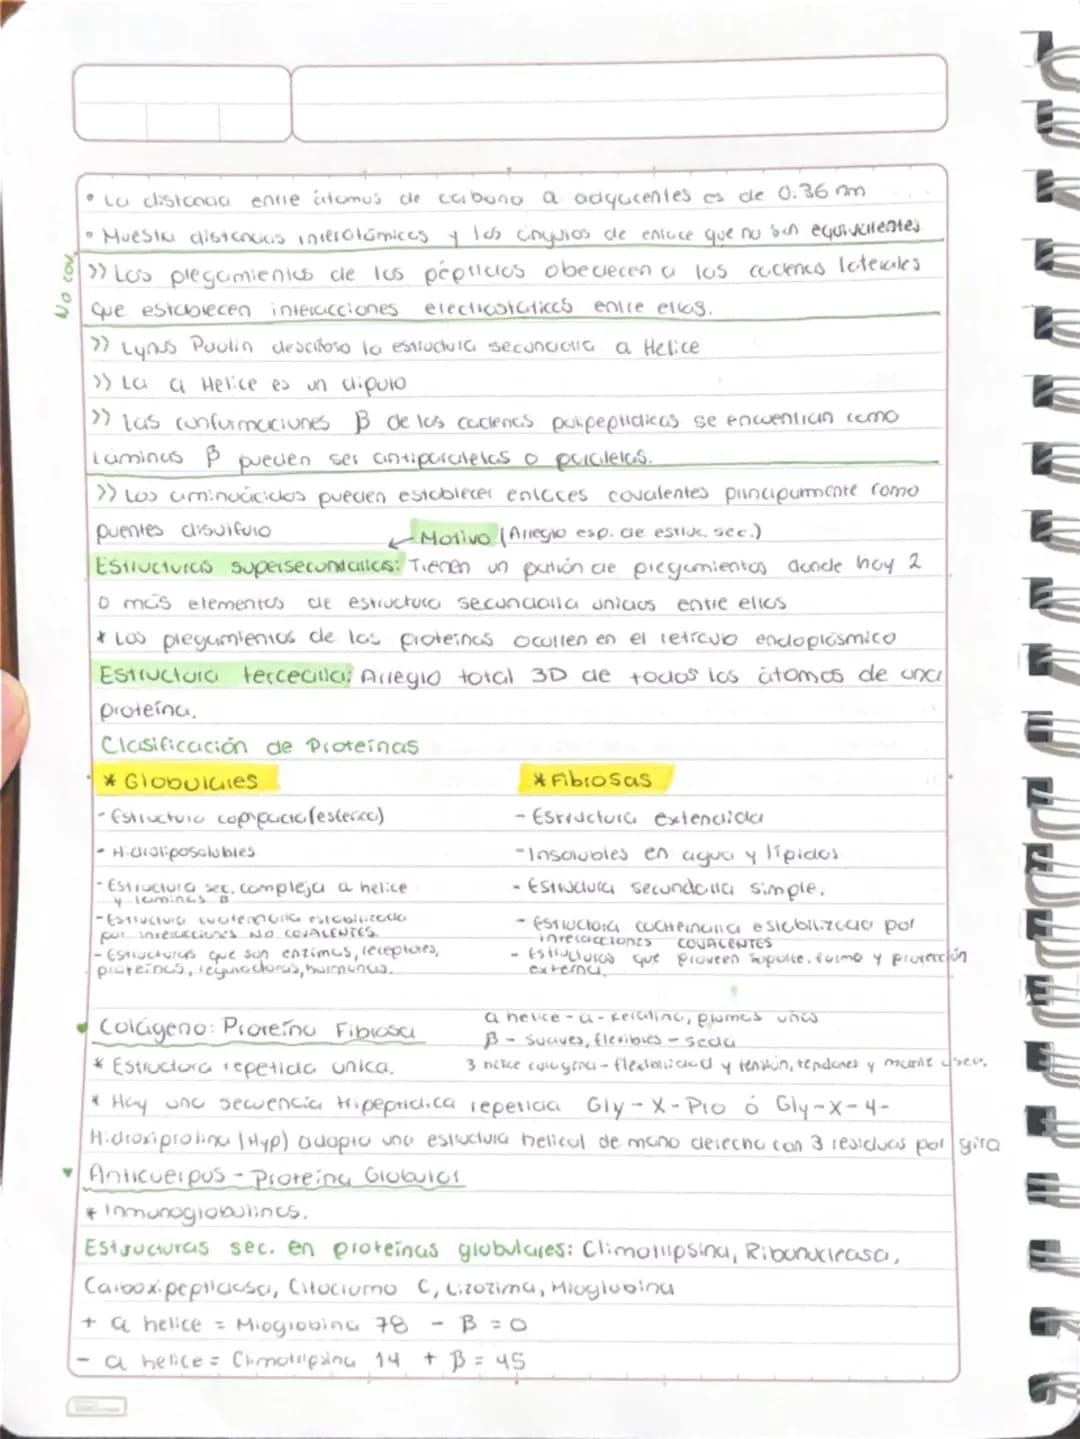 • La distancia entre átomos de carbono α adyacentes es de 0.36 nm
• Muestra distancias interatómicas y los ángulos de enlace que no son equivalentes
No cov.
>> Los plegamientos de los péptidos obedecen a las cadenas laterales
que establecen interacciones electrostáticas entre ellas.
>> Lynus Paulin descifroso la estructura secundaria α Helice
>> La α Helice es un dipolo
>> Las conformaciones β de las cadenas polipeptidicas se encuentran como
láminas β pueden ser antiparalelas o paralelas.
>> Los aminoácidos pueden establecer enlaces covalentes principalmente como
puentes disulfuro
Motivo (Arreglo esp. de estruc. sec.)
Estructuras supersecundarias: Tienen un patrón de plegamientos donde hay 2
o más elementos de estructura secundaria unidos entre ellas
* Los plegamientos de las proteínas ocurren en el retículo endoplásmico
Estructura tercecilla: Arreglo total 3D de todos los átomos de una
proteína.
Clasificación de Proteínas
* Globulares
* Fibrosas
- Estructura compacta (esférica)
- Estructura extendida
- Hidroliposolubles
- Insolubles en agua y lípidos
- Estructura sec. compleja α helice
y laminas β
- Estructura secundaria simple.
- Estructura cuaternaria estabilizada
por interacciones NO COVALENTES
- Estructura cuaternaria estabilizada por
interacciones COVALENTES
- Estructuras que son enzimas, receptores,
proteínas, reguladoras, hormonas.
- Estructuras que proveen soporte, forma y protección
externa.
♥ Colágeno: Proteína Fibrosa
α helice - α - keratina, plumas uñas
β - Suaves, flexibles - seda
* Estructura repetida única.
3 helice colagena - flexibilidad y tensión, tendones y matriz
* Hay una secuencia tripeptidica repetida Gly - X - Pro ó Gly - X - 4 -
Hidroxiprolina (Hyp) adopta una estructura helical de mano derecha con 3 residuos por gira
♥ Anticuerpos - Proteína Globular
* Inmunoglobulinas.
Estructuras sec. en proteínas globulares: Cimotripsina, Ribonucleasa,
Carboxipeptidasa, Citocromo C, Lizozima, Mioglobina
+ α helice = Mioglobina 78 - β = 0
- α helice = Cimotripsina 14 + β = 45